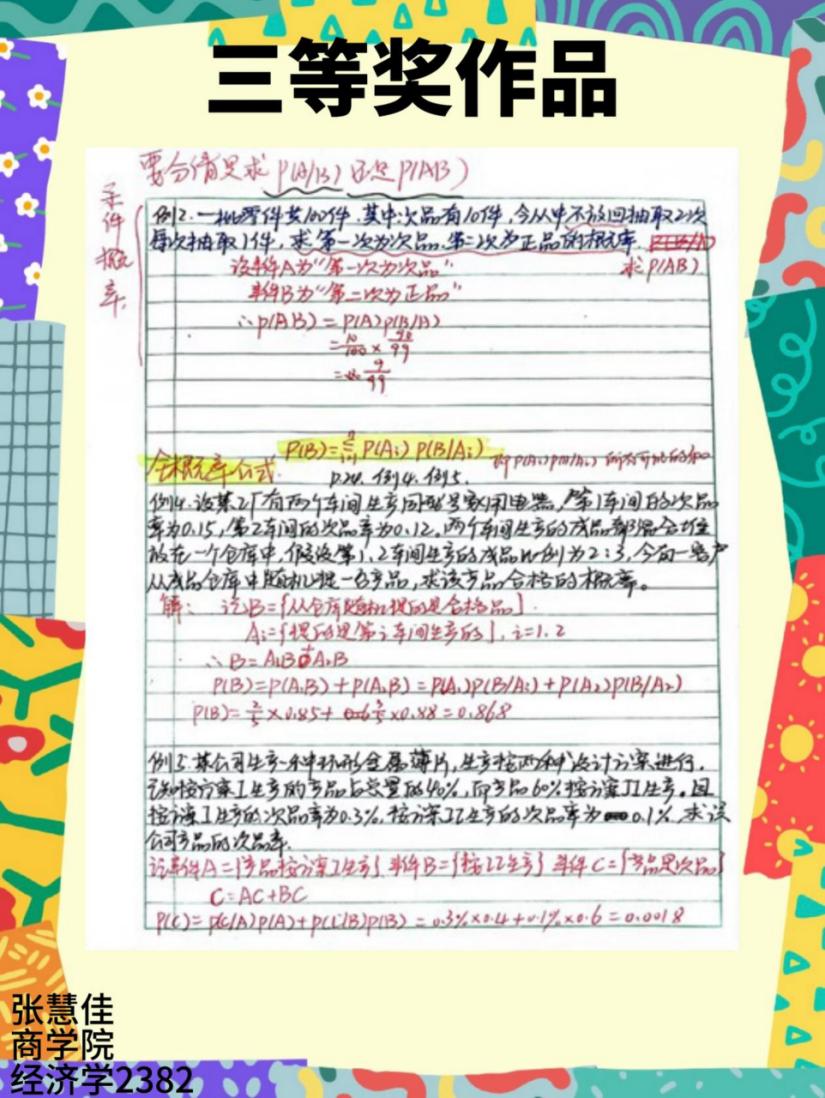 三等奖作品
要分清是求 P(A/B) 还是 P(AB)
条件概率
例2.一批零件共100件,其中次品有10件,今从中不放回抽取2次
每次抽取1件,求第一次为次品,第二次为正品的概率.
求 P(AB)
设事件A为“第一次为次品”
事件B为“第二次为正品”
∴P(AB) = P(A)P(B/A)
= 10/100 × 90/99
= 9/99
全概率公式. P(B)=∑ⁿᵢ₌₁ P(Aᵢ) P(B/Aᵢ)
P24. 例4. 例5.
例4.设某工厂有两个车间生产同型号家用电器,第1车间的次品
率为0.15,第2车间的次品率为0.12。两个车间生产的成品都混合堆
放在一个仓库中,假设第1、2车间生产的成品比例为2:3,今有一客户
从成品仓库中随机提一台产品,求该产品合格的概率。
解: 设B={从仓库随机提的是合格品}.
Aᵢ={提的是第i车间生产的}, i=1.2
∴ B = A₁B+A₂B
P(B)=P(A₁B)+P(A₂B)=P(A₁)P(B/A₁)+P(A₂)P(B/A₂)
P(B)= 2/5 ×0.85+ 3/5 ×0.88=0.868
例5.某公司生产一种环形金属薄片,生产按两种设计方案进行.
已知按方案I生产的产品占总量的40%,而产品60%按方案II生产。且
按方案I生产的次品率为0.3%,按方案II生产的次品率为0.1%,求该
公司产品的次品率.
设事件A={产品按方案I生产} 事件B={按II生产} 事件C={产品是次品}
C=AC+BC
P(C)= P(C/A)P(A)+P(C/B)P(B) = 0.3%×0.4+0.1%×0.6=0.0018
张慧佳
商学院
经济学2382